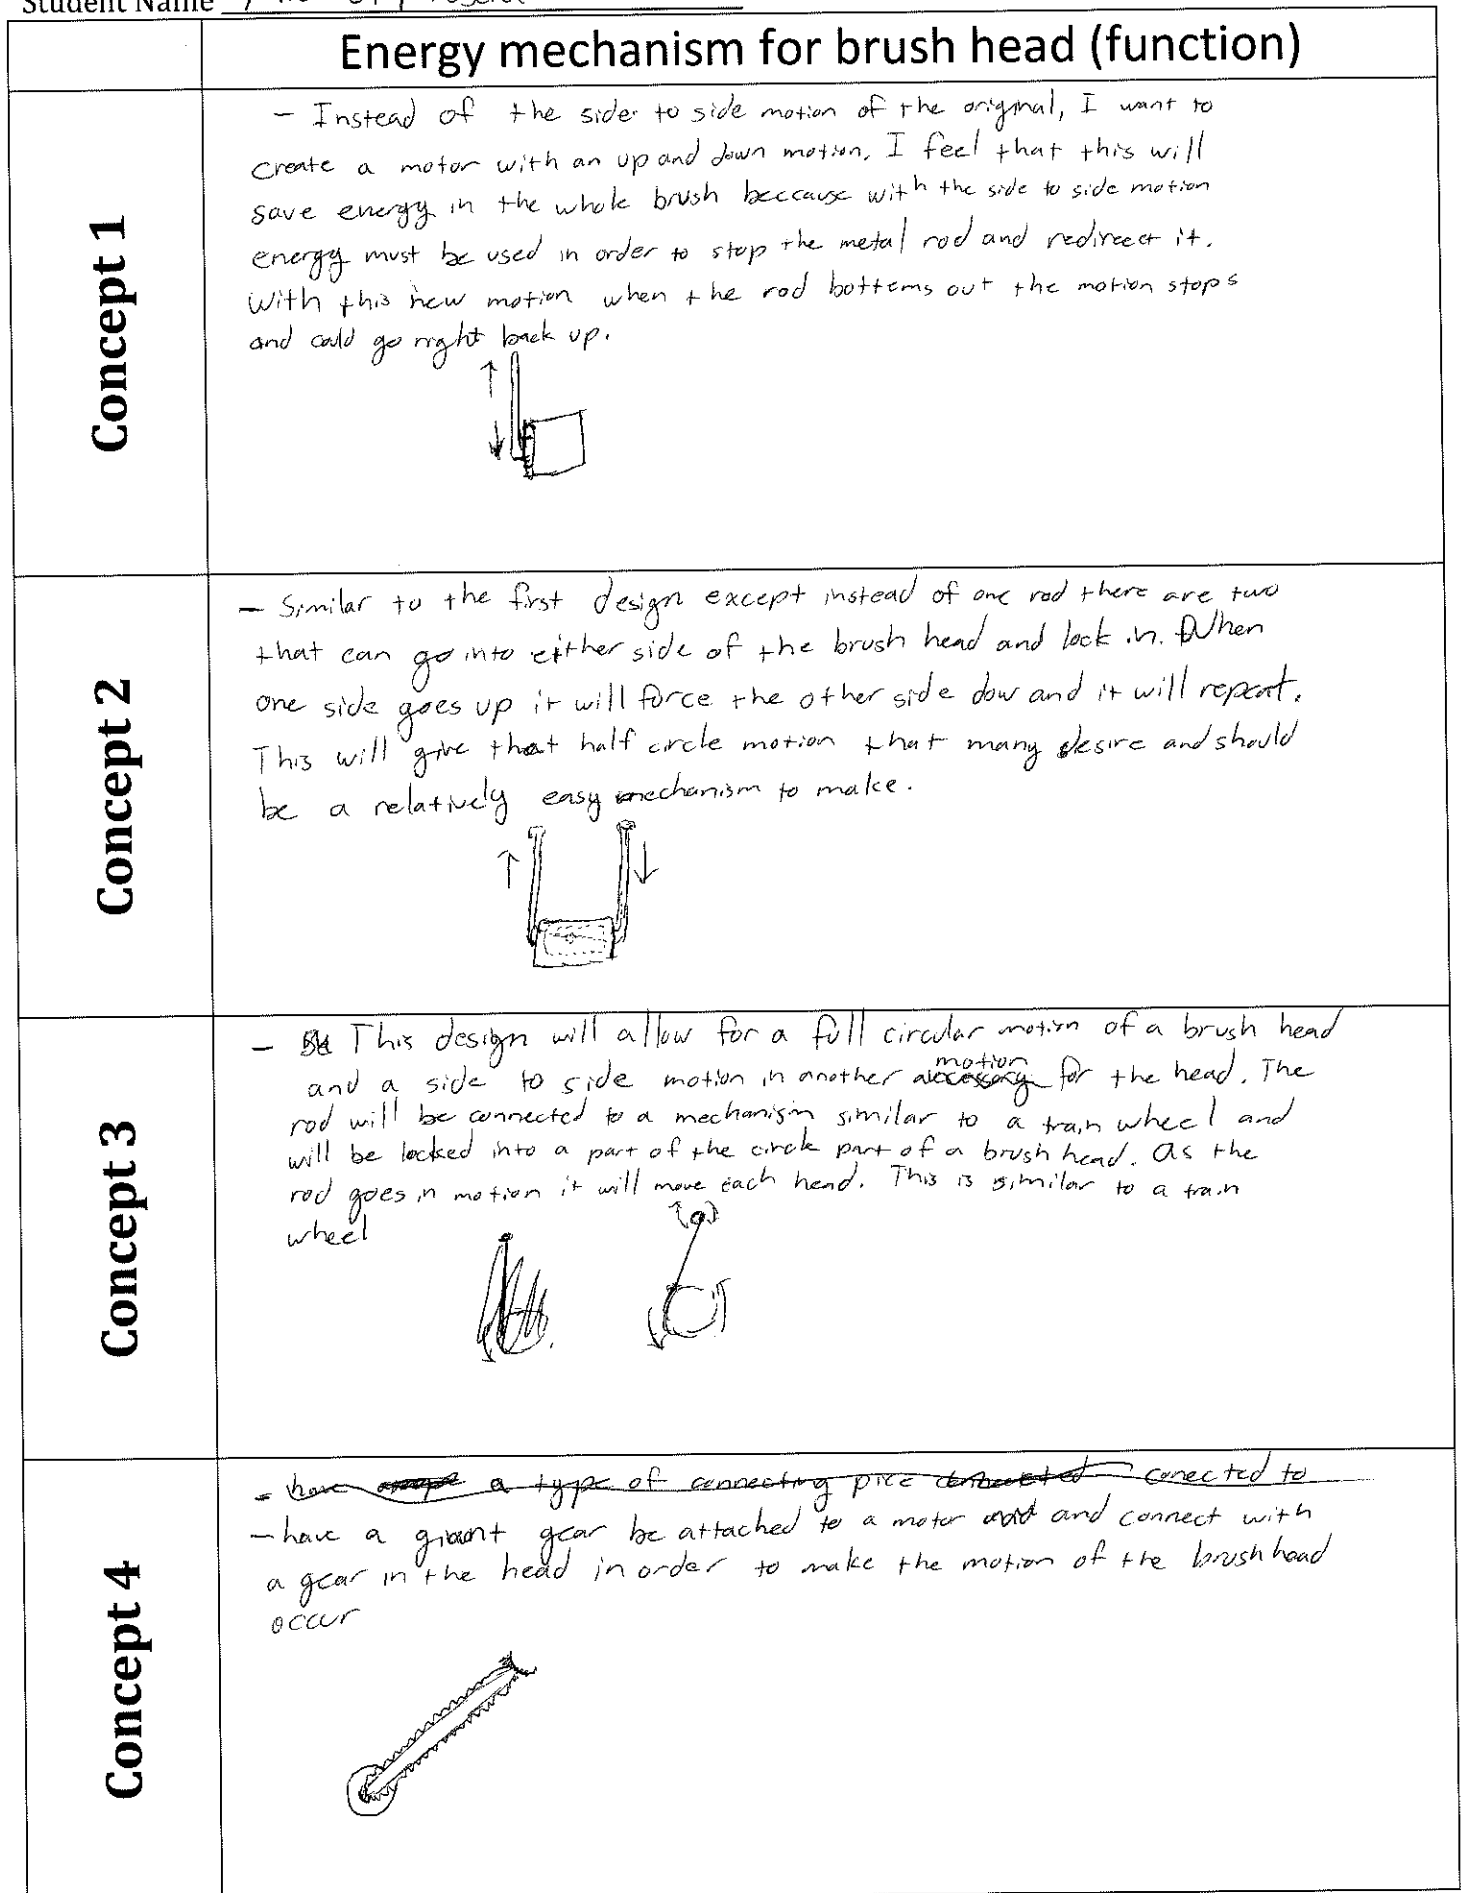 Student Name
Energy mechanism for brush head (function)
Concept 1
- Instead of the side to side motion of the original, I want to
create a motor with an up and down motion. I feel that this will
save energy in the whole brush beccause with the side to side motion
energy must be used in order to stop the metal rod and redirect it.
With this new motion when the rod bottoms out the motion stops
and could go right back up.
Concept 2
- Similar to the first design except instead of one rod there are two
that can go into either side of the brush head and lock in. When
one side goes up it will force the other side dow and it will repeat.
This will give that half circle motion that many desire and should
be a relatively easy mechanism to make.
Concept 3
- This design will allow for a full circular motion of a brush head
and a side to side motion in another motion for the head. The
rod will be connected to a mechanism similar to a train wheel and
will be locked into a part of the circle part of a brush head. as the
rod goes in motion it will move each head. This is similar to a train
wheel
Concept 4
- have a type of connecting pice conected to
- have a giant gear be attached to a motor and connect with
a gear in the head in order to make the motion of the brush head
occur